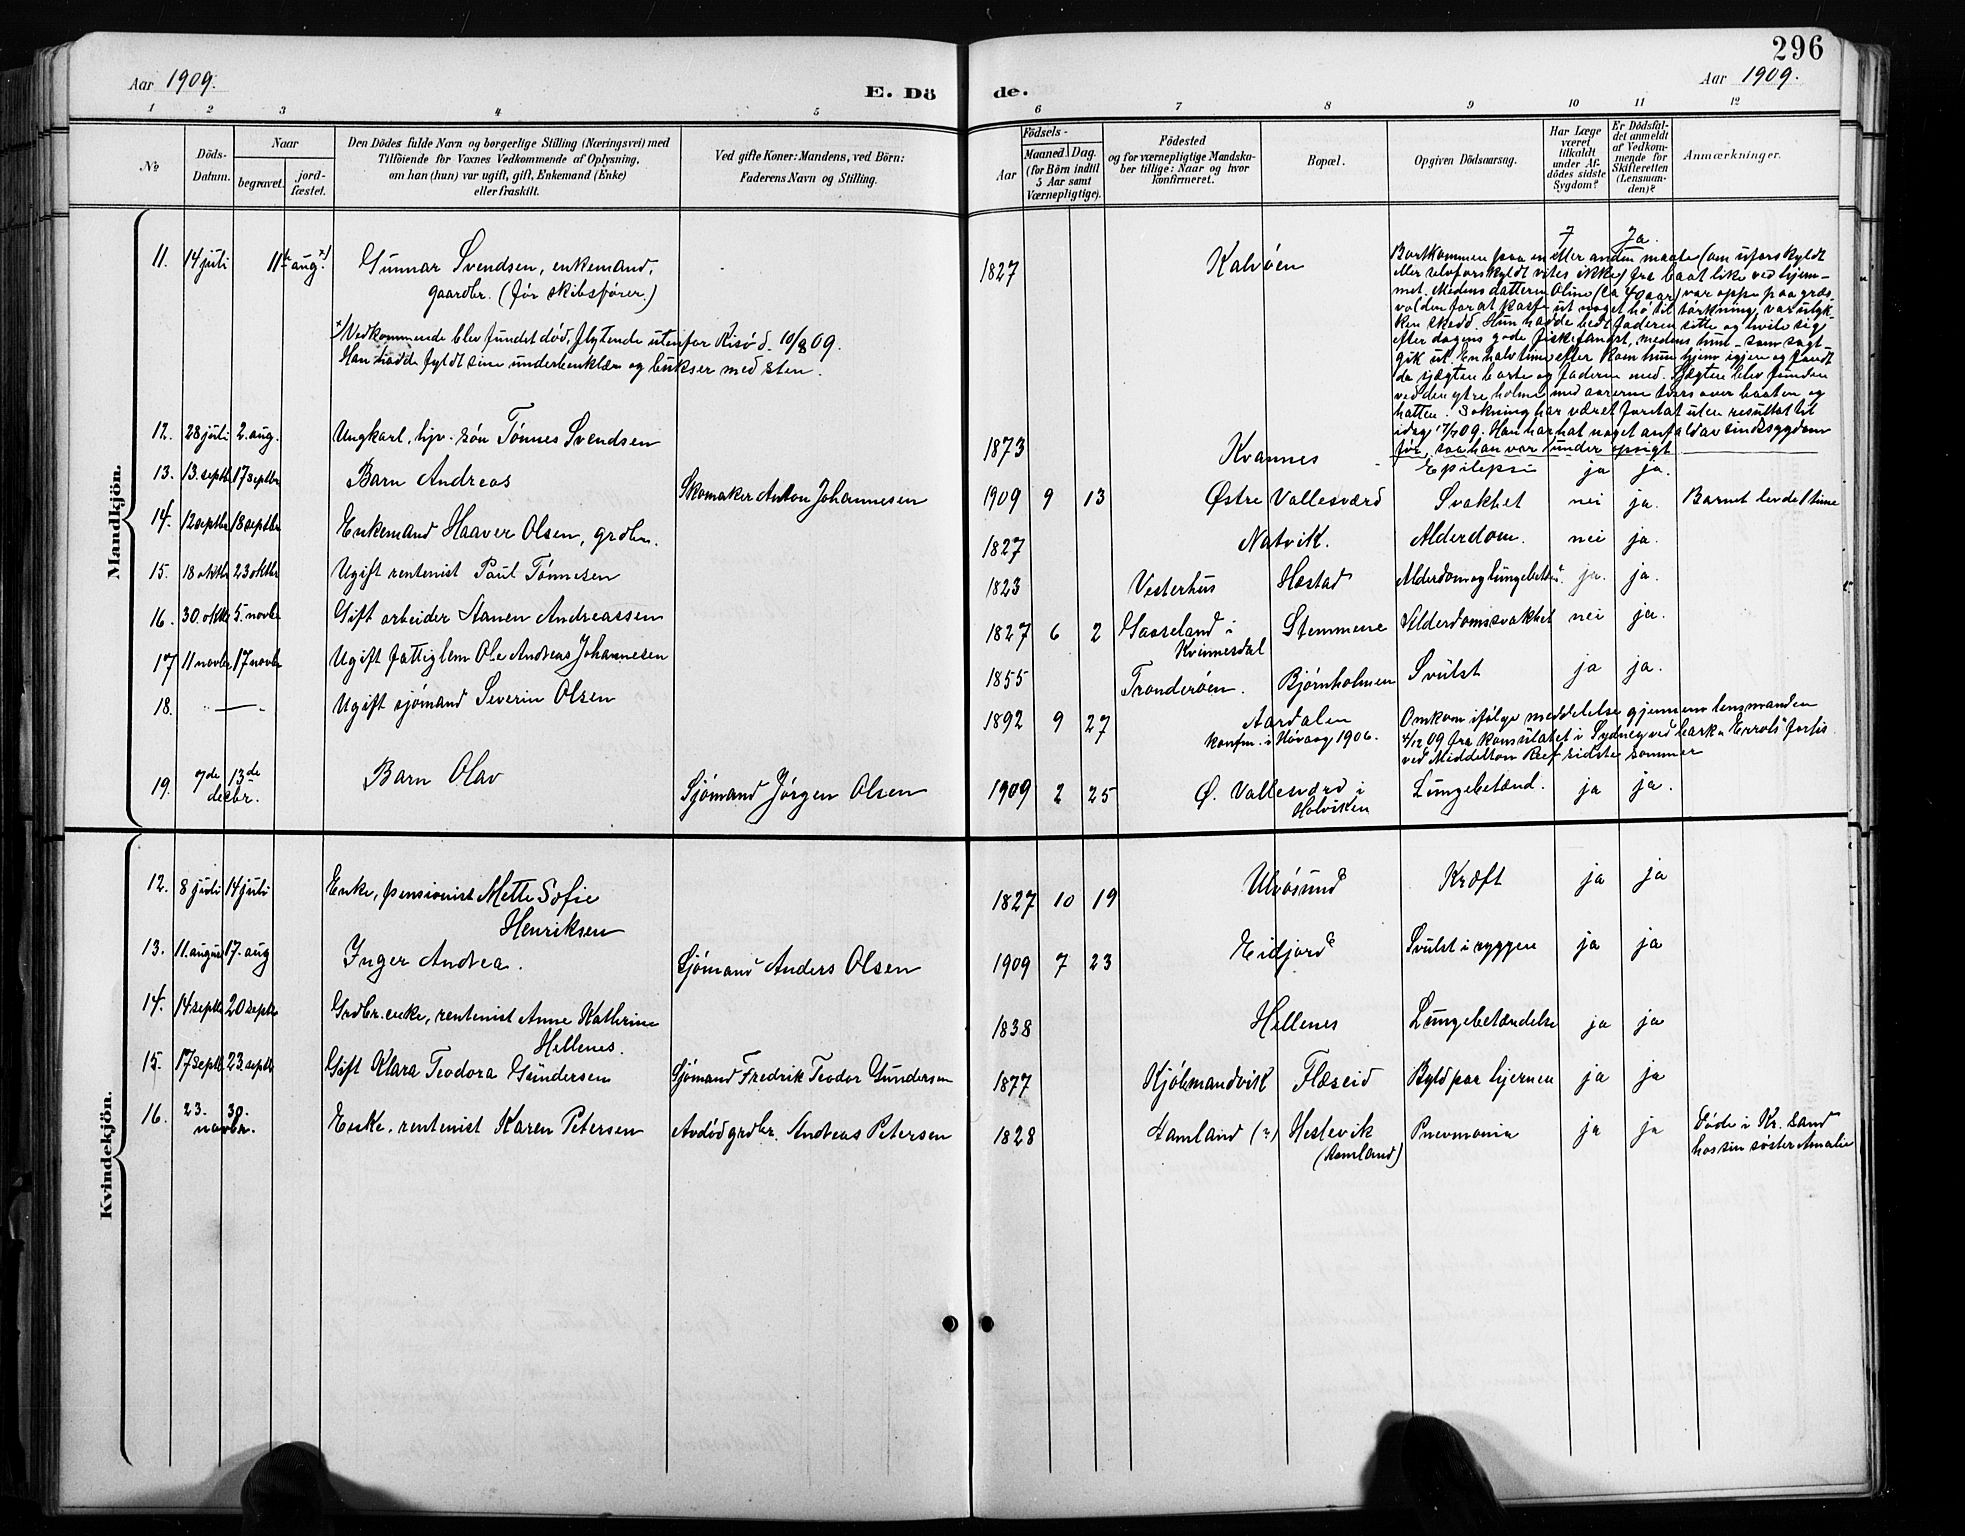 296
Aar 1909.
E. Dö de.
Aar 1909.
1 2 3 4 5 6 7 8 9 10 11 12
No
Döds-Datum.
Naar
begravet.
jord-fæstet.
Den Dödes fulde Navn og borgerlige Stilling (Næringsvei) med
Tilföiende for Voxnes Vedkommende af Oplysning,
om han (hun) var ugift, gift, Enkemand (Enke)
eller fraskilt.
Ved gifte Koner: Mandens, ved Börn:
Faderens Navn og Stilling.
Födsels-
Aar
Maaned. Dag.
(for Börn indtil
5 Aar samt
Værnepligtige).
Födested
og for værnepligtige Mandska-
ber tillige: Naar og hvor
konfirmeret.
Bopæl.
Opgiven Dödsaarsag.
Har Læge
været
tilkaldt
under Af-
dödes sidste
Sygdom?
Er Dödsfal-
det anmeldt
af Vedkom-
mende for
Skifteretten
(Lensman-
den)?
Anmærkninger.
Mandkjön.
11. 14 juli 11te aug. x) Gunnar Svendsen, enkemand, 1827 Kalvöen
gaardbr. (för skibsfører.)
x) Vedkommende blev fundet död, flytende utenfor Risö d. 10/8 09.
Han hadde fyldt sine underbenklær og bukser med sten.
7 Ja.
Bortkommen paa en eller anden maate (om uforskyldt
eller selvforskyldt vites ikke) fra baat like ved hjem-
met. Medens datteren Oline (ca 40 aar) var oppe paa græs-
volden for at kaste ut noget hö til törkning, var ulyk-
ken skedd. Hun hadde bedt faderen sitte og hvile sig
efter dagens gode fiskefangst, medens hun - som sagt -
gik ut. En halv time efter kom hun hjem igjen og fandt
da sjægten borte og faderen med. Sjægten blev funden
ved den ytre holme med aarerne tvers over baaten og
hatten. Sökning har været foretat uten resultat til
idag 17/7 09. Han har hat noget anfald av sindssygdom
för, saa han var under opsigt
12. 28 juli 2. aug. Ungkarl, hjv. sön Tönnes Svendsen 1873 Kvannes Epilepsi ja ja.
13. 13. septbr 17 septbr Barn Andreas Skomaker Anton Johannesen 1909 9 13 Østre Vallesværd Svakhet nei ja. Barnet levde 1 time
14. 12 septbr 18 septbr Enkemand Haaver Olsen, grdbr. 1827 Natvik. Alderdom. nei ja.
15. 18 oktbr 23 oktbr Ugift rentenist Paul Tönnesen 1823 Vesterhus Hæstad Alderdom og lungebetd. ja. ja.
16. 30. oktbr 5. novbr Gift arbeider Aanen Andreassen 1827 6 2 Gaaseland i Kvinnesdal Stemmene Alderdomssvakhet nei ja.
17 11 novbr 17 novbr Ugift fattiglem Ole Andreas Johannesen 1855 Tronderöen. Bjørnholmen Svulst ja ja.
18. — Ugift sjömand Severin Olsen 1892 9 27 Aardalen
konfm. i Hövaag 1906.
Omkom ifölge meddelelse gjennem lensmanden
4/12 09 fra konsulatet i Sydney ved bark "Errols" forlis
ved Middelton Reef sidste sommer
19. 7de 13de decbr. Barn Olav Sjömand Jörgen Olsen 1909 2 25 Ø. Vallesværd i Holviken Lungebetænd. ja ja.
Kvindekjön.
12. 8 juli 14 juli Enke, pensionist Mette Sofie
Henriksen 1827 10 19 Ulvösund Kræft ja ja
13. 11. august 17. aug Inger Andrea. Sjömand Anders Olsen 1909 7 23 Eidjord Svulst i ryggen ja ja
14. 14 septbr 20 septbr Grdbr. enke, rentenist Anne Kathrine
Hellenes. 1838 Hellenes Lungebetændelse ja ja
15. 17 septb. 23. septbr Gift Klara Teodora Gundersen Sjömand Fredrik Teodor Gundersen 1877 Kjöbmandvik Flæseid Byld paa hjernen ja ja
16. 23. 30. novbr. Enke, rentenist Karen Petersen Avdöd grdbr. Andreas Petersen 1828 Aamland (?) Hestevik
(Aamland) Pneumonia ja ja Döde i Kr. sand
hos sin söster Amalie